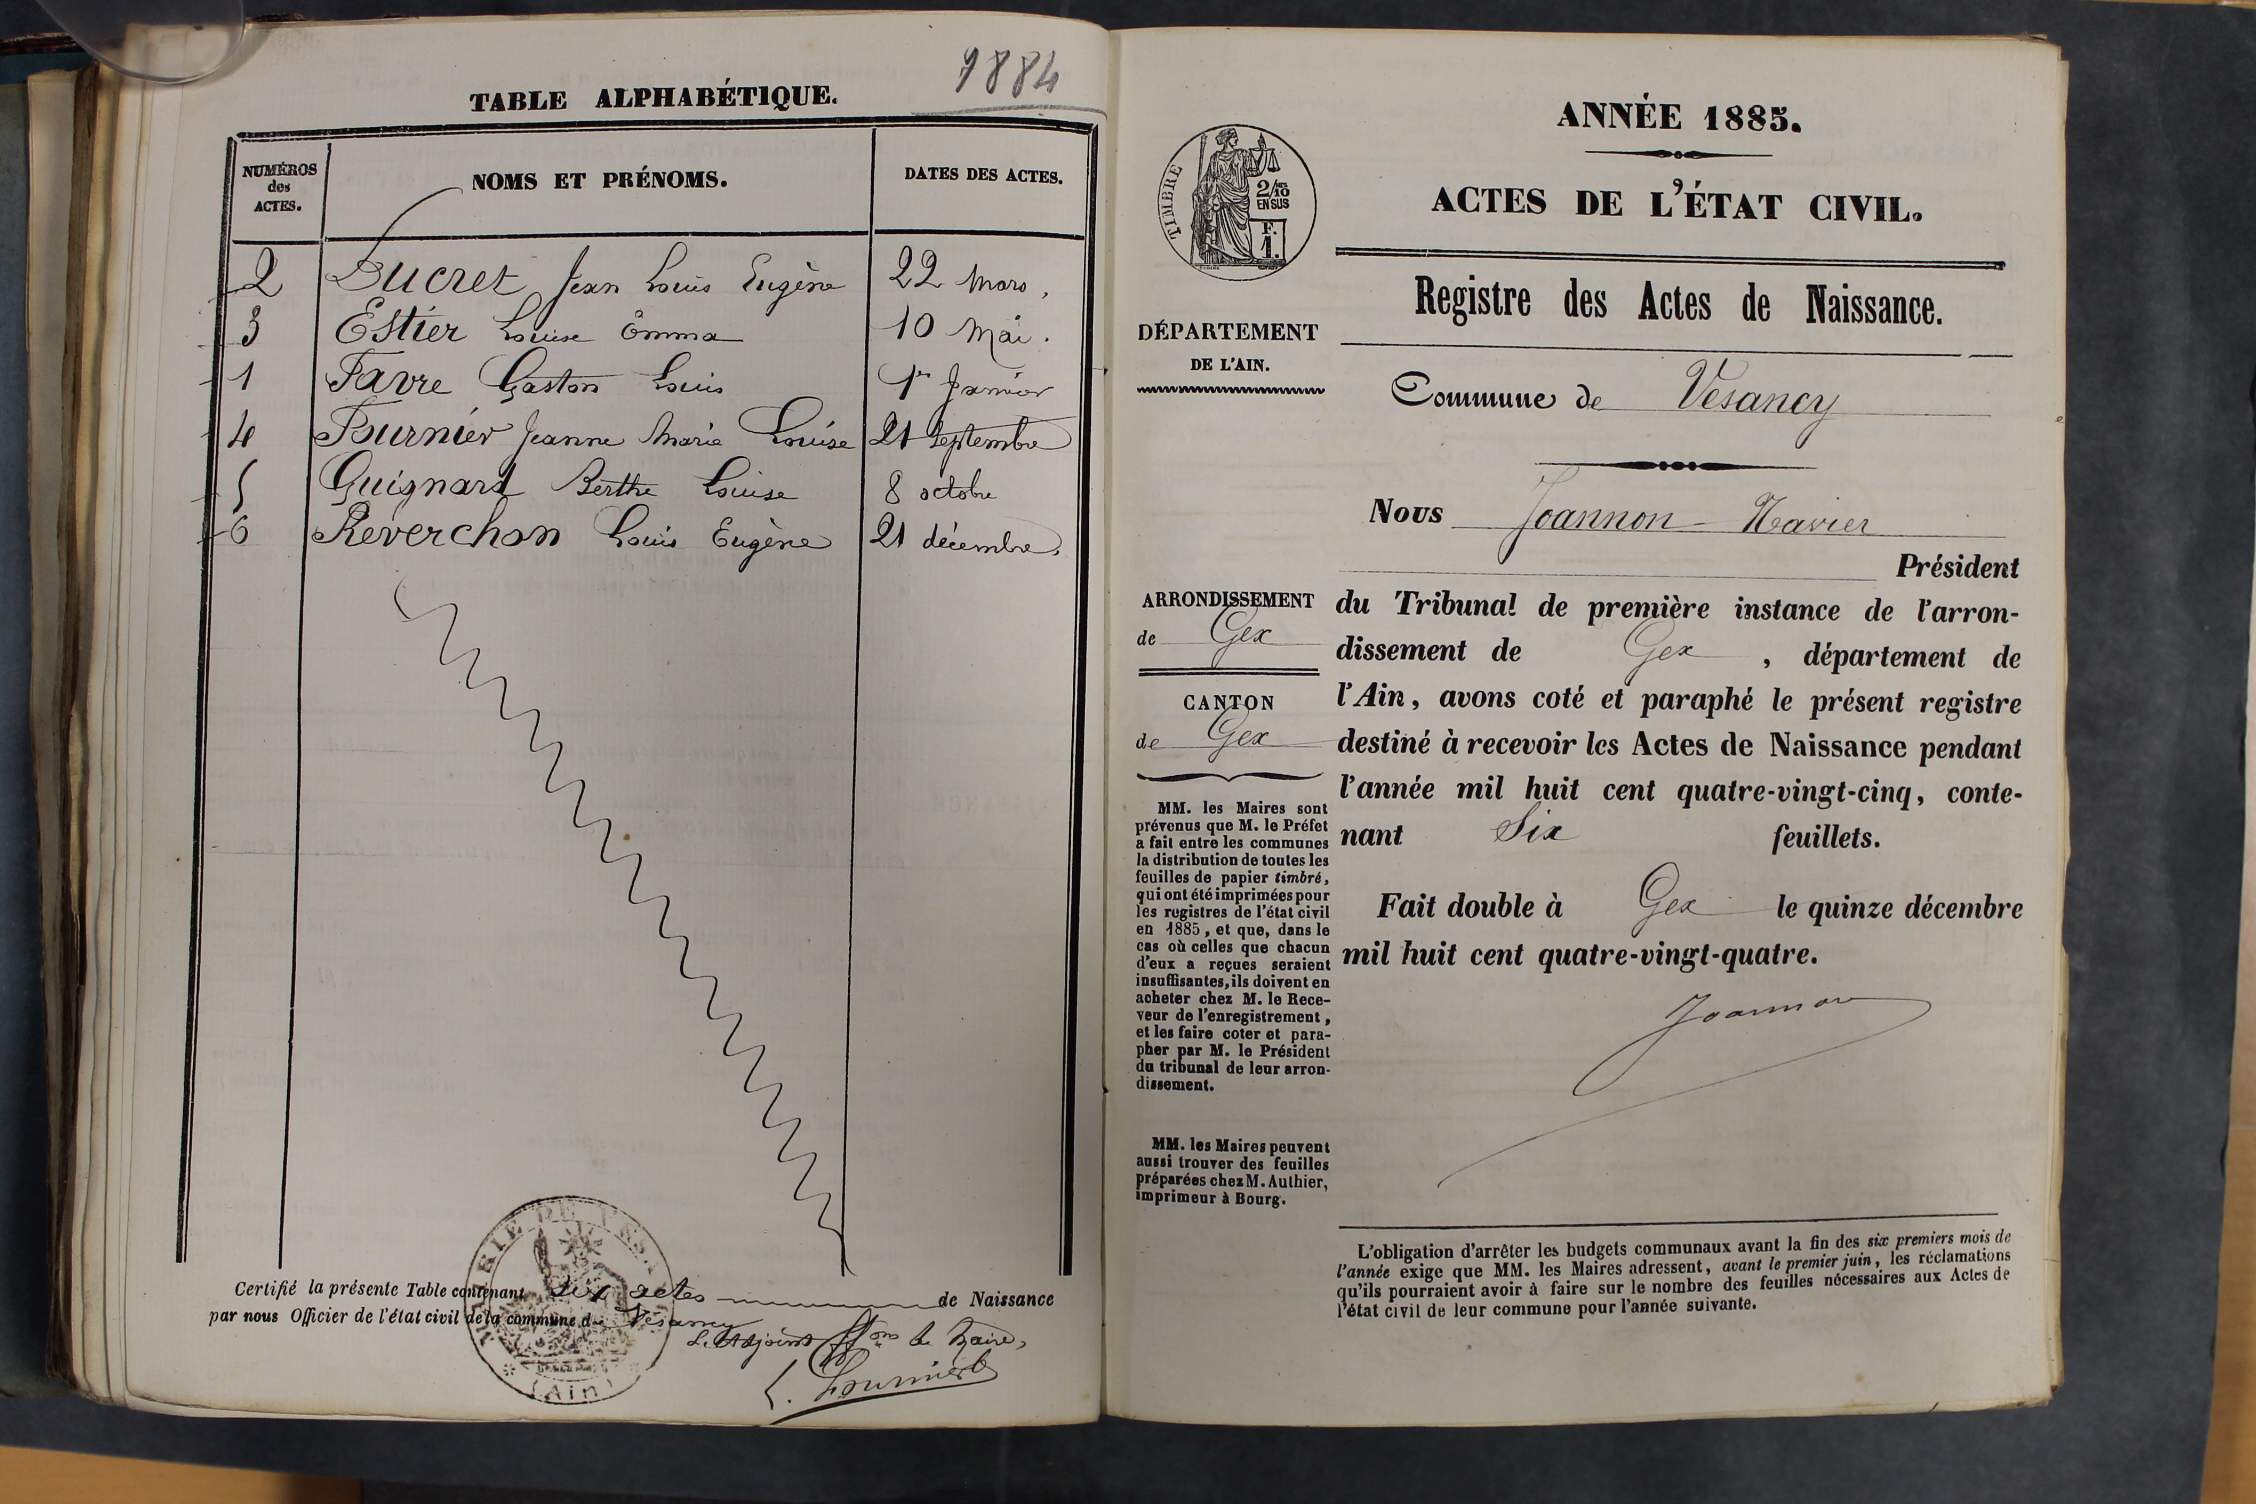 1884
TABLE ALPHABÉTIQUE.
NUMÉROS des ACTES. NOMS ET PRÉNOMS. DATES DES ACTES.
2 Ducret Jean Louis Eugène 22 Mars,
3 Estier Louise Emma 10 Mai.
1 Favre Gaston Louis 1er Janvier
4 Fournier Jeanne Marie Louise 21 Septembre
5 Guignard Berthe Louise 8 octobre
6 Reverchon Louis Eugène 21 décembre.
Certifié la présente Table contenant six actes de Naissance
par nous Officier de l'état civil de la commune de Vésancy
L'Adjoint ffons de Maire,
L. Fournier
MAIRIE DE VESANCY
(Ain)
ANNÉE 1885.
ACTES DE L'ÉTAT CIVIL.
TIMBRE
2/10
EN SUS
F.
1.
Registre des Actes de Naissance.
DÉPARTEMENT
DE L'AIN.
Commune de Vesancy
Nous Joannon Xavier
Président
ARRONDISSEMENT
de Gex
CANTON
de Gex
du Tribunal de première instance de l'arron-
dissement de Gex, département de
l'Ain, avons coté et paraphé le présent registre
destiné à recevoir les Actes de Naissance pendant
l'année mil huit cent quatre-vingt-cinq, conte-
nant Six feuillets.
Fait double à Gex le quinze décembre
mil huit cent quatre-vingt-quatre.
Joannon
MM. les Maires sont
prévenus que M. le Préfet
a fait entre les communes
la distribution de toutes les
feuilles de papier timbré,
qui ont été imprimées pour
les registres de l'état civil
en 1885, et que, dans le
cas où celles que chacun
d'eux a reçues seraient
insuffisantes, ils doivent en
acheter chez M. le Rece-
veur de l'enregistrement,
et les faire coter et para-
pher par M. le Président
du tribunal de leur arron-
dissement.
MM. les Maires peuvent
aussi trouver des feuilles
préparées chez M. Authier,
imprimeur à Bourg.
L'obligation d'arrêter les budgets communaux avant la fin des six premiers mois de
l'année exige que MM. les Maires adressent, avant le premier juin, les réclamations
qu'ils pourraient avoir à faire sur le nombre des feuilles nécessaires aux Actes de
l'état civil de leur commune pour l'année suivante.